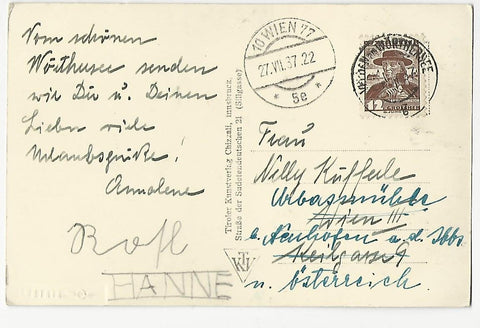 Vom schönen
Wörthersee senden
wir Dir u. Deinen
Lieben viele
Urlaubsgrüße!
Annalene
Rolf
HANNE
Tiroler Kunstverlag Chizzali, Innsbruck,
Straße der Sudetendeutschen 21 (Sillgasse)
10 WIEN 77
27.VII.37.22
* 5e *
WÖRTHERSEE
12
Frau
Nelly Kufferle
Wien III
Keilgasse 9
n. Österreich